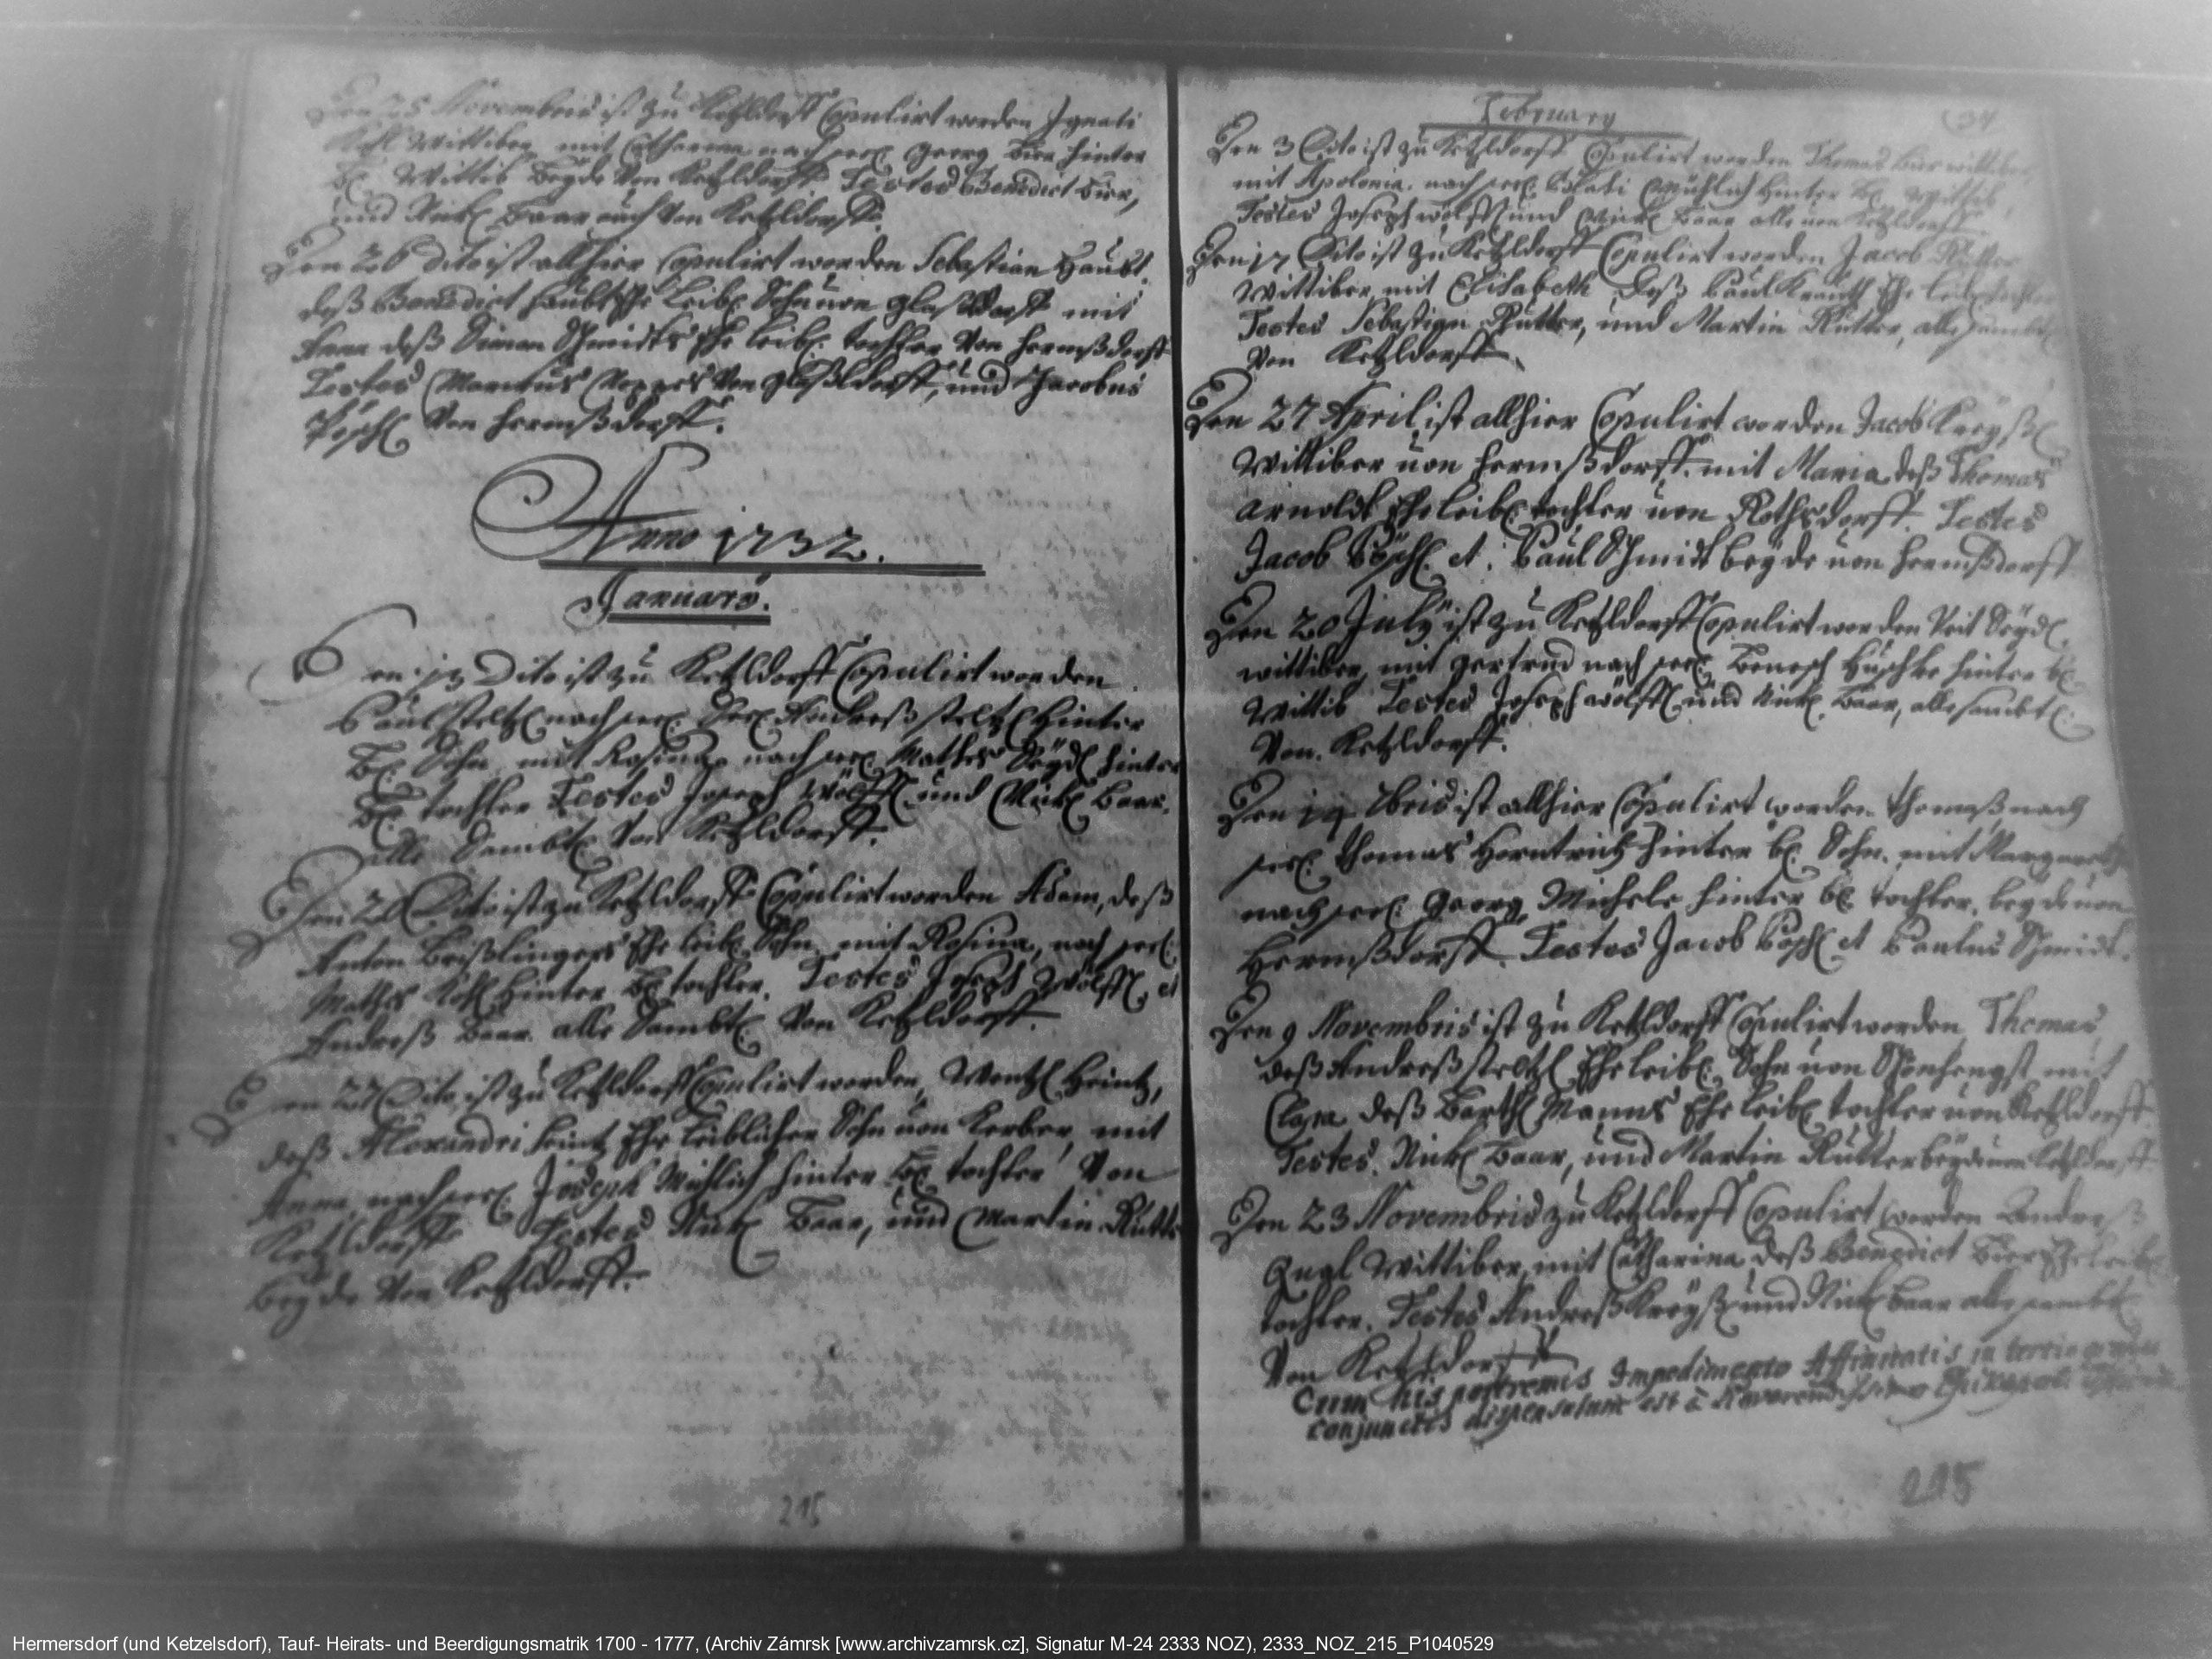 Den 25 Novembris ist zu Ketzldorff Copulirt worden Ignati
Wittiber mit Catharina nach seel. Georg Bier hinter
Bl. Wittib Beyde Von Ketzldorff Testes Benedict Bier,
und Nickl Baar auch Von Ketzldorff.
Den 26 dito ist allhier Copulirt worden Sebastian Haubt,
deß Benedict Haubts Ehe leibl. Sohn von mit
Anna deß Simon Schmidts Ehe leibl. tochter Von Hermßdorff
Testes Marcus Von und Jacobus
Pöschl Von Hermßdorff.
Anno 1732.
January.
Den 13 Dito ist zu Ketzldorff Copulirt worden
Paul Steltzl nach seel. Andreß Steltzl Hinter
Bl. Sohn mit Rosina nach seel. Mathes Seydl hinter
Bl. tochter Testes Joseph Wölffl und Nickl Baar,
alle Sambtl. Von Ketzldorff.
Den Dito ist zu Ketzldorff Copulirt worden Adam, deß
Anton Ehe leibl. Sohn mit Rosina, nach seel.
Mathes Hinter Bl. tochter. Testes Joseph Wölffl, et
Andreß Baar. alle Sambtl. Von Ketzldorff.
Den 27 Dito ist zu Ketzldorff Copulirt worden, Wentzl Heintz,
deß Alexandri Heintz Ehe leiblicher Sohn von Körber, mit
Anna, nach seel. Joseph Michlich hinter Bl. tochter Von
Ketzldorff Testes Nickl Baar, und Martin Rutter
beyde Von Ketzldorff.
215
February
Den 3 Dito ist zu Ketzldorff Copulirt worden Thomas wittiber
mit Apolonia. nach seel. hinter Bl. Wittib,
Testes Joseph wölffl und Nickl Baar alle von Ketzldorff.
Den 17 Dito ist zu Ketzldorff Copulirt worden Jacob Rutter
Wittiber mit Elisabeth deß Paul Ehe leibl. tochter
Testes Sebastian Rutter, und Martin Rutter, alle sambtl.
Von Ketzldorff.
Den 27 April ist allhier Copulirt worden Jacob Kreyßl
Wittiber von Hermßdorff. mit Maria deß Thomas
Arnoldt Ehe leibl. tochter von Rothsdorff. Testes
Jacob Pöschl. et. Paul Schmidt beyde von Hermßdorff
Den 20 July ist zu Ketzldorff Copulirt worden Veit Seydl,
wittiber mit gertrud nach seel. Benesch hinter bl.
Wittib Testes Joseph wölffl und Nickl. Baar, alle sambtl.
Von. Ketzldorff.
Den 14 ist allhier Copulirt worden thomaß nach
seel. thomas Horntrich hinter bl. Sohn. mit Margaretha
nach seel. Georg Michele hinter bl. tochter. beyde von
Hermßdorff. Testes Jacob Pöschl et Paulus Schmidt.
Den 9 Novembris ist zu Ketzldorff Copulirt worden Thomas,
deß Andreß Steltzl Ehe leibl. Sohn von Schönhengst mit
Clara deß Barthl Manns Ehe leibl. tochter von Ketzldorff.
Testes. Nickl Baar, und Martin Rutter beyde von Ketzldorff.
Den 23 Novembris zu Ketzldorff Copulirt worden Andreß
Wittiber, mit Catharina deß Benedict Bier Ehe leibl.
tochter. Testes Andreß Kreyßl und Nickl Baar alle sambtl.
Von Ketzldorff
Cum his postremis Impedimento Affinitatis in tertio gradu
conjunctis dispensatum est à Reverendissimo
215
Hermersdorf (und Ketzelsdorf), Tauf- Heirats- und Beerdigungsmatrik 1700 - 1777, (Archiv Zámrsk [www.archivzamrsk.cz], Signatur M-24 2333 NOZ), 2333_NOZ_215_P1040529